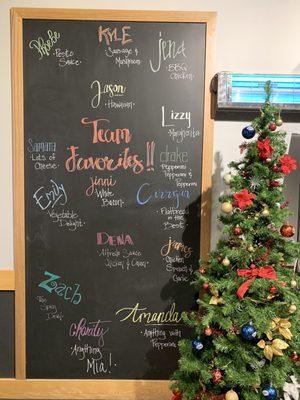 Phoebe
·Pesto
Sauce
KYLE
·Sausage &
Mushroom
Jena
·BBQ
Chicken
Jason
·Hawaiian·
Lizzy
·Margherita
Team
Favorites!!
Samara
·Lots of
Cheese·
drake
Pepperoni
Pepperoni &
Pepperoni
jenni
White
·Bacon·
Emily
·Vegetable
Delight·
·Flatbread's
are the
Best·
DENA
·Alfredo Sauce
Chicken & Bacon·
James
·Chicken
Spinach &
Garlic·
Zach
·The
Spicy
Dew·
Amanda
·Anything w/
Pepperoni·
Charity
·Anything
Mia!